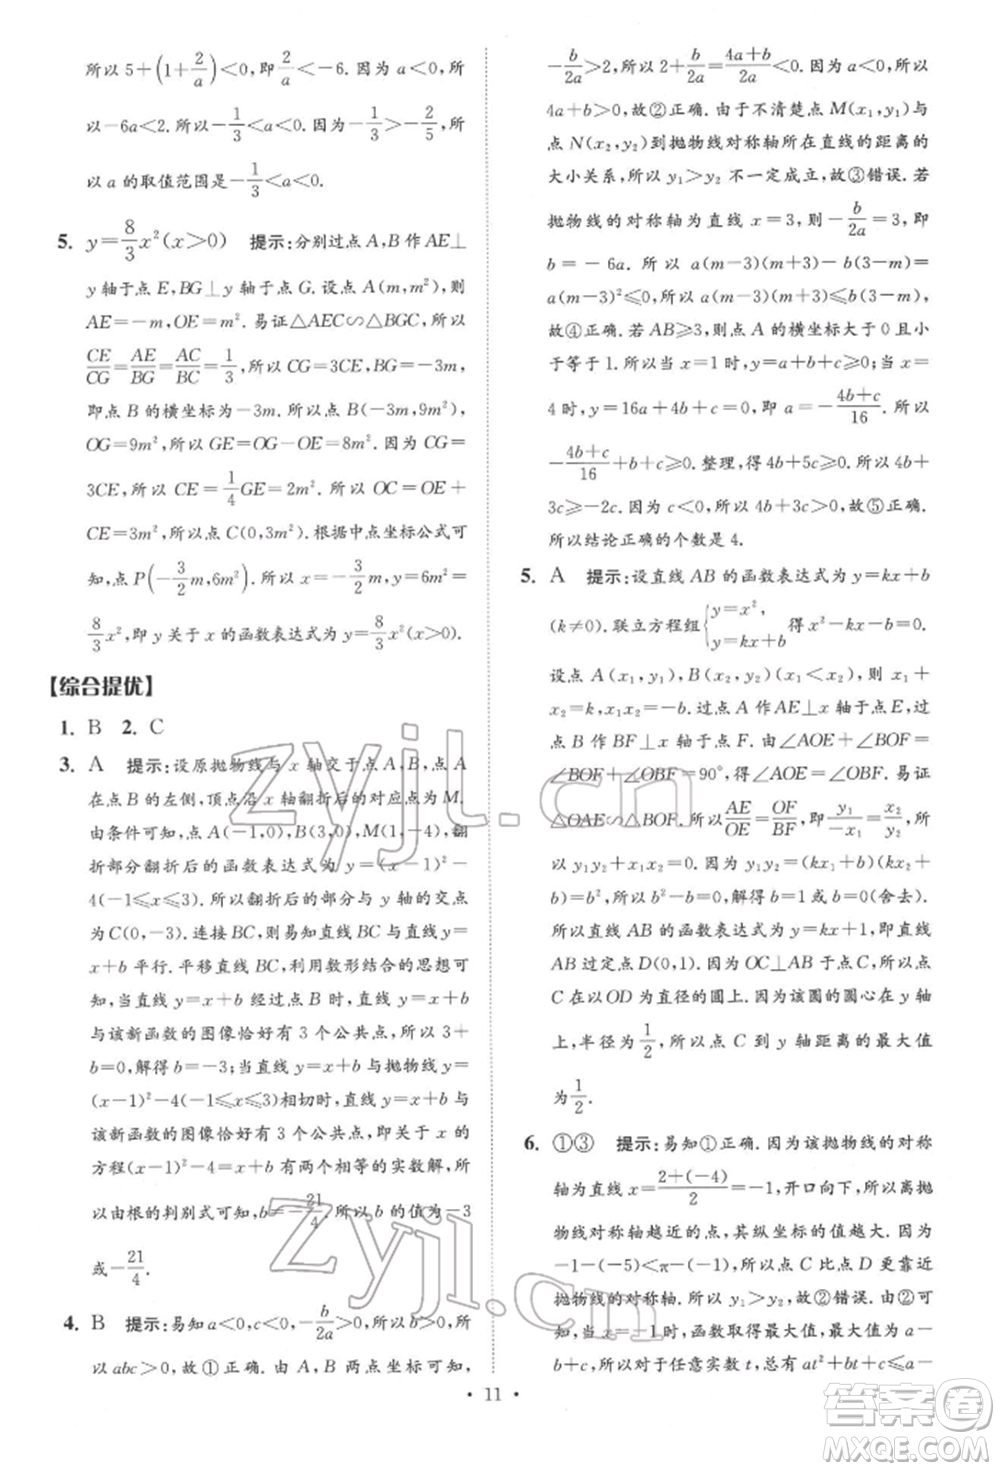 所以 5+(1+2/a)<0,即 2/a<-6. 因为 a<0,所
以-6a<2. 所以-1/3<a<0. 因为-1/3>-2/5,所
以 a 的取值范围是-1/3<a<0.
5. y=8/3x²(x>0) 提示:分别过点 A,B 作 AE⊥
y 轴于点 E,BG⊥y 轴于点 G. 设点 A(m,m²),则
AE=-m,OE=m². 易证△AEC∽△BGC,所以
CE/CG=AE/BG=AC/BC=1/3,所以 CG=3CE,BG=-3m,
即点 B 的横坐标为-3m. 所以点 B(-3m,9m²),
OG=9m²,所以 GE=OG-OE=8m². 因为 CG=
3CE,所以 CE=1/4GE=2m². 所以 OC=OE+
CE=3m²,所以点 C(0,3m²). 根据中点坐标公式可
知,点 P(-3/2m,6m²),所以 x=-3/2m,y=6m²=
8/3x²,即 y 关于 x 的函数表达式为 y=8/3x²(x>0).
【综合提优】
1. B 2. C
3. A 提示:设原抛物线与 x 轴交于点 A,B,点 A
在点 B 的左侧,顶点沿 x 轴翻折的对应点为 M.
由条件可知,点 A(-1,0),B(3,0),M(1,-4),翻
折部分翻折后的函数表达式为 y=(x-1)²-
4(-1≤x≤3). 所以翻折后的函数图像与 y 轴的交点
为 C(0,-3). 连接 BC,则易知直线 BC 与直线 y=
x+b 平行. 平移直线 BC,利用数形结合的思想可
知,当直线 y=x+b 经过点 B 时,直线 y=x+b
与该新函数的图像恰好有 3 个公共点,所以 3+
b=0,解得 b=-3;当直线 y=x+b 与抛物线 y=
(x-1)²-4(-1≤x≤3)相切时,直线 y=x+b 与
该新函数的图像恰好有 3 个公共点,即关于 x 的
方程(x-1)²-4=x+b 有两个相等的实数解,所
以由根的判别式可知,b=-21/4. 所以 b 的值为-3
或-21/4.
4. B 提示:易知 a<0,c<0,-b/2a>0,所以 b>0,所
以 abc>0,故①正确. 由 A,B 两点坐标可知,
-b/2a>2,所以 2+b/2a=4a+b/2a<0. 因为 a<0,所以
4a+b>0,故②正确. 由于不清楚点 M(x₁,y₁)与
点 N(x₂,y₂)到抛物线对称轴所在直线的距离的
大小关系,所以 y₁>y₂ 不一定成立,故③错误. 若
抛物线的对称轴为直线 x=3,则-b/2a=3,即
b=-6a. 所以 a(m-3)(m+3)-b(m-3)=
a(m-3)²≤0,所以 a(m-3)(m+3)≤b(m-3),
故④正确. 若 AB≥3,则点 A 的横坐标大于 0 且小
于等于 1. 所以当 x=1 时,y=a+b+c≥0;当 x=
4 时,y=16a+4b+c=0,即 a=-4b+c/16. 所以
-4b+c/16+b+c≥0. 整理,得 4b+5c≥0. 所以 4b+
3c≥-2c. 因为 c<0,所以 4b+3c>0,故⑤正确.
所以结论正确的个数是 4.
5. A 提示:设直线 AB 的函数表达式为 y=kx+b
(k≠0). 联立方程组{y=x², y=kx+b 得 x²-kx-b=0.
设点 A(x₁,y₁),点 B(x₂,y₂)(x₁<x₂),则 x₁+
x₂=k,x₁x₂=-b. 过点 A 作 AE⊥x 轴于点 E,过点
B 作 BF⊥x 轴于点 F. 由∠AOE+∠BOF=
∠BOF+∠EAO=90°,可知∠AOE=∠BOF. 易证
△OAE∽△BOF. 所以 AE/OE=OF/BF,即 y₁/-x₁=x₂/y₂,所
以 y₁y₂=-x₁x₂=b. 因为 y₁y₂=(kx₁+b)(kx₂+
b)=b²,所以 b²-b=0,解得 b=1 或 b=0(舍去).
所以直线 AB 的函数表达式为 y=kx+1,即直线
AB 过定点 D(0,1). 因为 OC⊥AB 于点 C,所以点
C 在以 OD 为直径的圆上. 因为该圆的圆心在 y 轴
上,半径为1/2,所以点 C 到 y 轴距离的最大值
为1/2.
6. ①③ 提示:易知①正确. 因为该抛物线的对称
轴为直线 x=2+(-4)/2=-1,开口向下,所以离抛
物线对称轴越近的点,其纵坐标的值越大. 因为
-1-(-5)<π-(-1),所以点 C 比点 D 更靠近
抛物线的对称轴. 所以 y₁>y₂,故②错误. 因为
当 x=-1 时,函数取得最大值,最大值为 a-
b+c,所以对于任意实数 t,总有 at²+bt+c≤a-
· 11 ·
Zyjl.cn
Zyjl.cn
答案圈
MXQE.COM